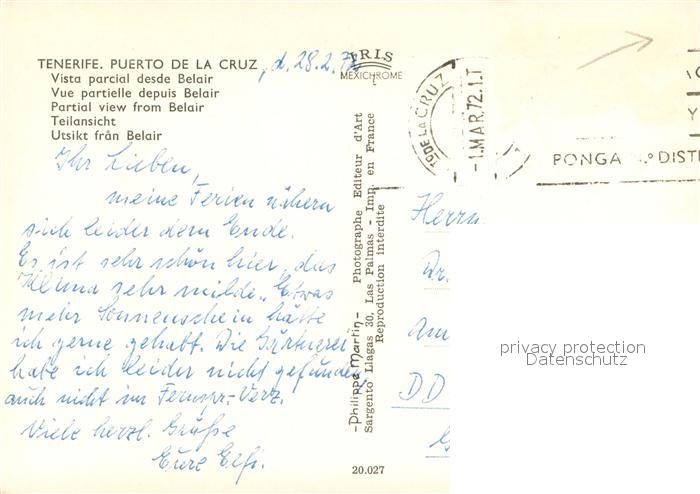 TENERIFE. PUERTO DE LA CRUZ, d. 28.2.72
Vista parcial desde Belair
Vue partielle depuis Belair
Partial view from Belair
Teilansicht
Utsikt från Belair
Ihr Lieben,
meine Ferien nähern
sich leider dem Ende.
Es ist sehr schön hier, das
Klima sehr milde. Etwas
mehr Sonnenschein hätte
ich gerne gehabt. Die Gärtnerei
habe ich leider nicht gefunden,
auch nicht im Fernspr.-Verz.
Viele herzl. Grüße
Eure Elfi.
IRIS
MEXICHROME
-Philippe Martin- Photographe Editeur d'Art
Sargento Llagas 30. Las Palmas - Imp. en France
Reproduction interdite
20.027
TO DE LA CRUZ
-1.MAR.72.1.T
Y
PONGA N.º DIST
Herrn
Dr.
Am
DD
privacy protection
Datenschutz